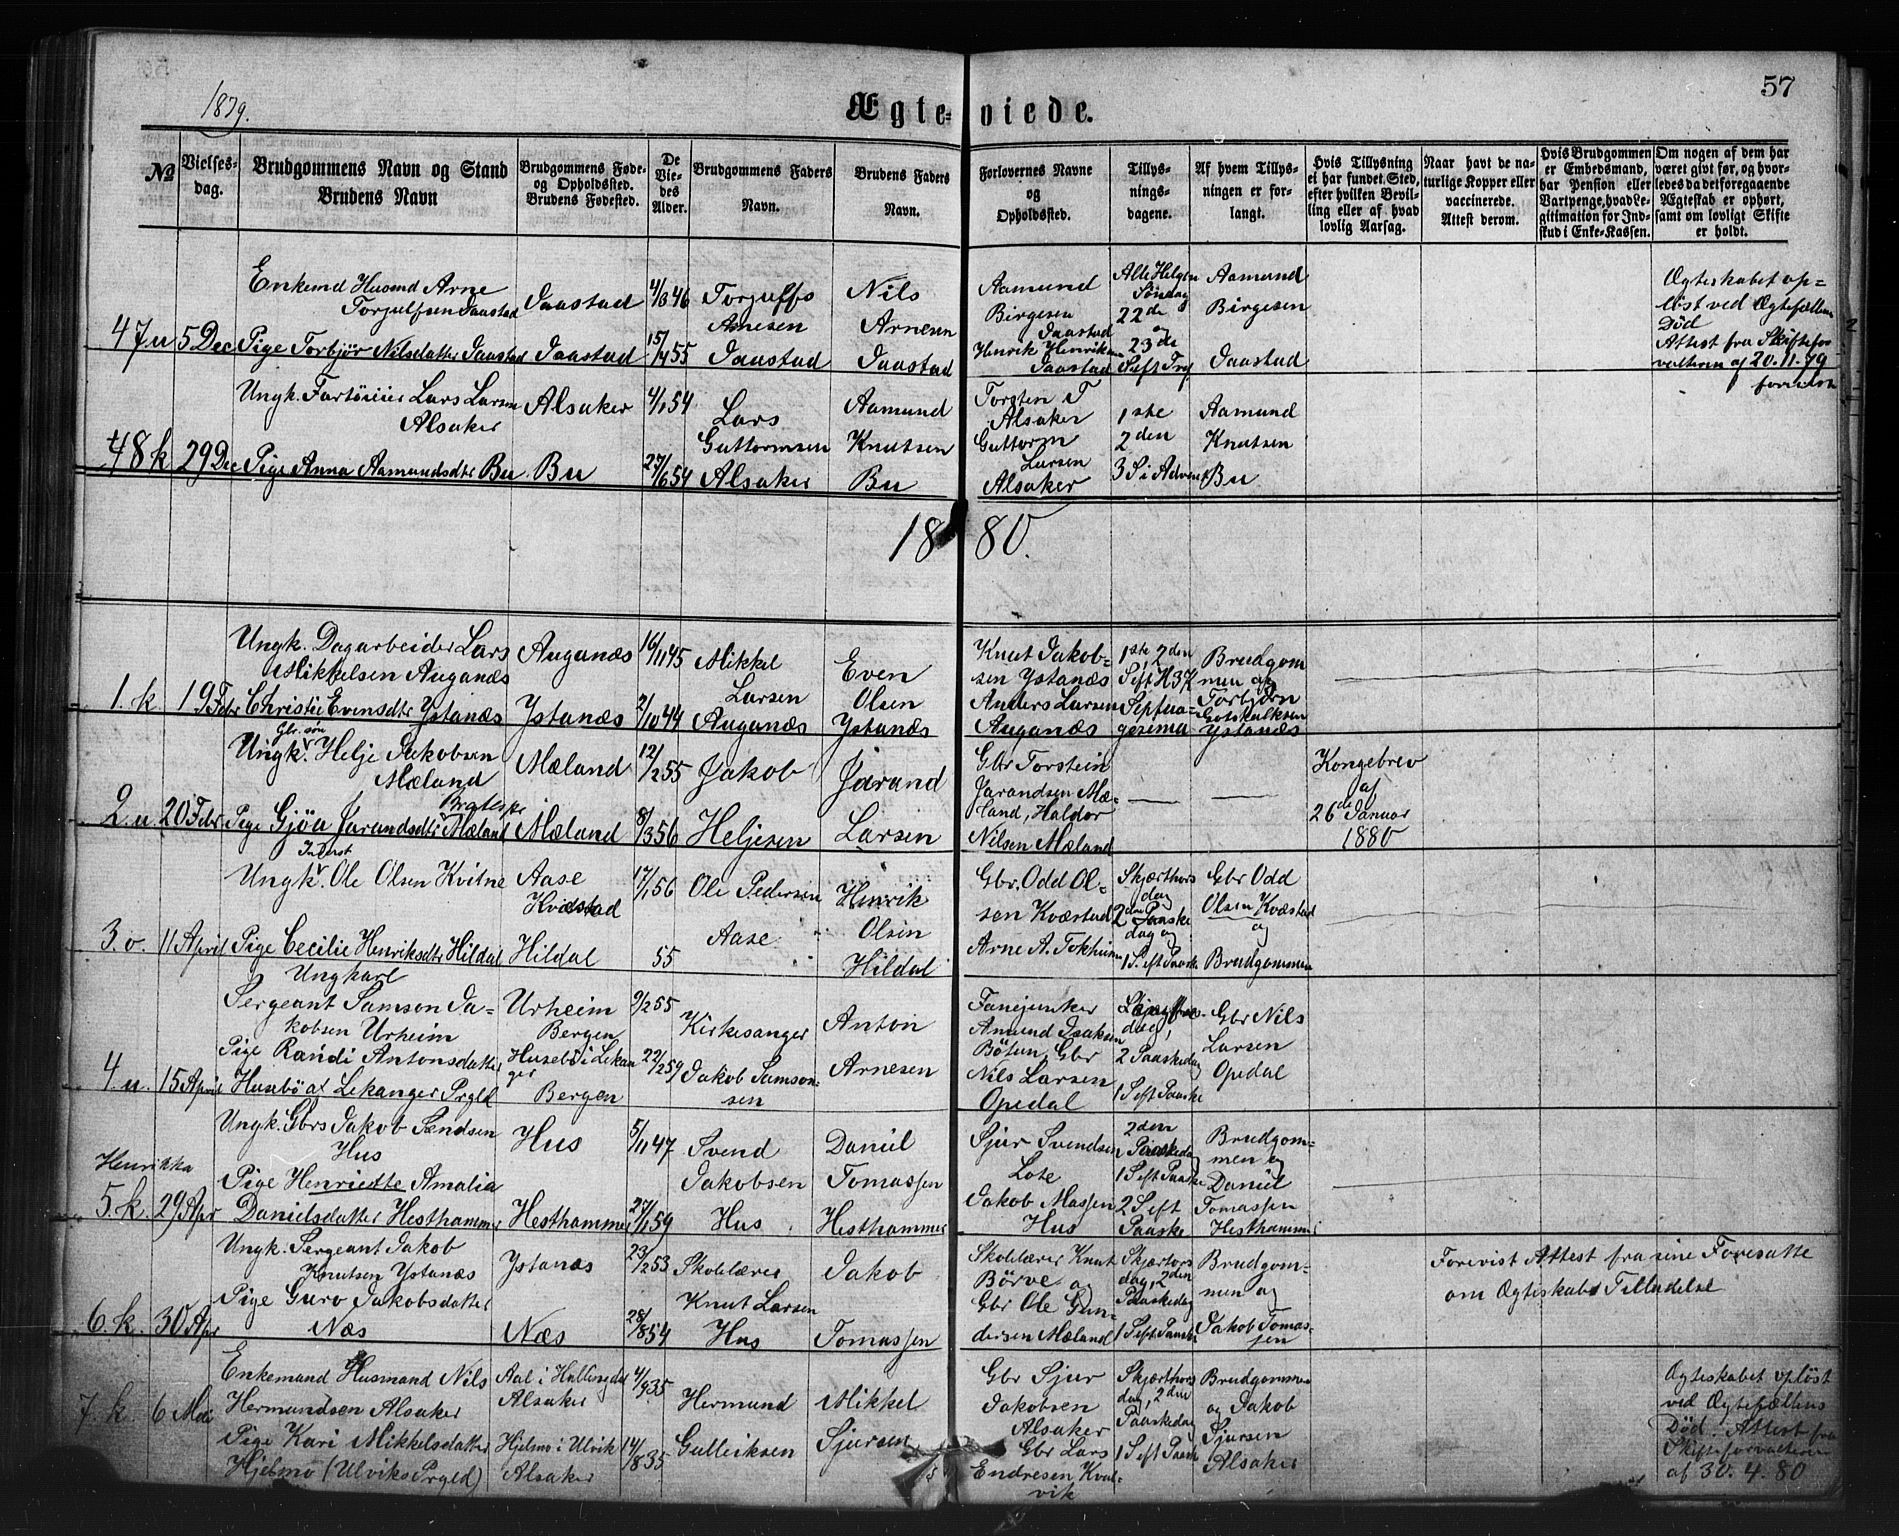 57
1879.
Ægteviede.
№
Vielses-
dag.
Brudgommens Navn og Stand
Brudens Navn
Brudgommens Føde-
og Opholdssted.
Brudens Fødested.
De
Vie-
des
Alder.
Brudgommens Faders
Navn.
Brudens Faders
Navn.
Forlovernes Navne
og
Opholdssted.
Tillys-
nings-
dagene.
Af hvem Tillys-
ningen er for-
langt.
Hvis Tillysning
ei har fundet Sted,
efter hvilken Bevil-
ling eller af hvad
lovlig Aarsag.
Naar havt de na-
turlige Kopper eller
vaccinerede.
Attest derom.
Hvis Brudgommen
er Embedsmand,
har Pension eller
Vartpenge, hvad Le-
gitimation for Ind-
skud i Enke-Kassen.
Om nogen af dem har
været givt før, og hvor-
ledes da det foregaaende
Ægteskab er ophørt,
samt om lovligt Skifte
er holdt.
47 u 5 Dec
Enkemd Husmd Arne
Torjulfsen Jaastad
Pige Torbjør Nilsdatter Jaastad
Jaastad
Jaastad
4/3 46
15/4 55
Torjulf
Arnesen
Jaastad
Nils
Arnesen
Jaastad
Aamund
Birgesen
Jaastad
Henrik Henriksen
Jaastad
Alle Helgen
Søndag
22de
og
23de
S eft Tref
Aamund
Birgesen
Jaastad
Ægteskabet op-
løst ved Ægtefællens
Død
Attest fra Skiftefor-
valteren af 20.11.79
forevist
48 k 29 Dec
Ungk. Lars Larsen
Alsaker
Pige Anna Aamundsdtr Bu
Alsaker
Bu
4/1 54
27/6 54
Lars
Guttormsen
Alsaker
Aamund
Knutsen
Bu
Torsten T
Alsaker
Guttorm
Larsen
Alsaker
1ste
2den
3 S i Advent
Aamund
Knutsen
Bu
1880.
1. k 19 Febr
Ungk. Dagarbeider Lars
Mikkelsen Auganæs
Christie Evensdtr Ystanæs
Auganæs
Ystanæs
16/11 45
2/10 44
Mikkel
Larsen
Auganæs
Even
Olsen
Ystanæs
Knut Jakob-
sen Ystanæs
Anders Larsen
Auganæs
1ste, 2den
S eft H3K
Septua-
gesima
Brudgom
men og
Torbjørn
Gotskalksen
Ystanæs
2. u 20 Febr
Gbr. søn
Ungk. Helje Jakobsen
Mæland
Pige Gjøa Jarandsdtr Mæland
Mæland
Mæland
12/2 55
8/3 56
Jakob
Heljesen
Jarand
Larsen
Gbr Torstein
Jarandsen Mæ-
land, Haldor
Nilsen Mæland
Kongebrev
af
26de Januar
1880
3. u. 11 April
Inderst
Ungk. Ole Olsen Kvitne
Pige Cecilie Henriksdtr Hildal
Aase
Kvæstad
Hildal
17/1 56
55
Ole Pedersen
Aase
Henrik
Olsen
Hildal
Gbr. Odd Ol-
sen Kvæstad
Arne A. Tokheim
Skjærthors
dag
2den Paaske
dag og
1 S. eft Paaske
Gbr Odd
Olsen Kvæstad
og
Brudgommen
4. u. 15 April
Ungkarl
Sergeant Samson Ja-
kobsen Urheim
Pige Randi Antonsdatter
Husebö af Lekanger Prgld
Urheim
Bergen
Husebö i Lekan
ger
Bergen
9/2 55
22/2 59
Kirkesanger
Jakob Samson-
sen
Anton
Arnesen
Fanejunker
Amund Isaksen
Böten, Gbr
Nils Larsen
Opedal
dag,
2 Paaskedag
1 S eft Paaske
Gbr Nils
Larsen
Opedal
Henrikka
5. k. 29 Apr
Ungk. Gbrs Jakob Svendsen
Hus
Pige Henriette Amalia
Danielsdatter Hesthammer
Hus
Hesthammer
5/11 47
27/1 59
Svend
Jakobsen
Hus
Daniel
Tomassen
Hesthammer
Sjur Svendsen
Lote
Jakob Massen
Hus
2den
Paaskedag
1 S eft Paaske
2 S eft
Paaske
Brudgom-
men og
Daniel
Tomassen
Hesthammer
6. k. 30 Apr
Ungk. Sergeant Jakob
Knutsen Ystanæs
Pige Guro Jakobsdatter
Næs
Ystanæs
Næs
23/2 53
28/8 54
Skolelærer
Knut Larsen
Hus
Jakob
Tomassen
Skolelærer Knut
Börve og
Gbr Ole Gun-
dersen Mæland
Skjærtors
dag, 2den
Paaskedag
1 S eft Paaske
Brudgom-
men og
Jakob Tomas-
sen
Forevist Attest fra sine Foresatte
om Ægteskabs Tilladelse
7. k. 6 Mai
Enkemand Husmand Nils
Hermundsen Alsaker
Pige Kari Mikkelsdatter
Hjelmo (Ulviks Prgld)
Aal i Hallingdal
Alsaker
Hjelmo i Ulvik
Alsaker
4/9 35
14/8 35
Hermund
Gulleiksen
Mikkel
Sjursen
Gbr Sjur
Jakobsen
Alsaker
Gbr Lars
Endresen Kval-
vik
Skjærthors
dag, 2den
Paaskedag
1 S eft Paaske
Brudgommen
og Jakob
Sjursen
Alsaker
Ægteskabet opløst
ved Ægtefællens
Død. Attest fra
Skifteforvalteren
af 30.4.80